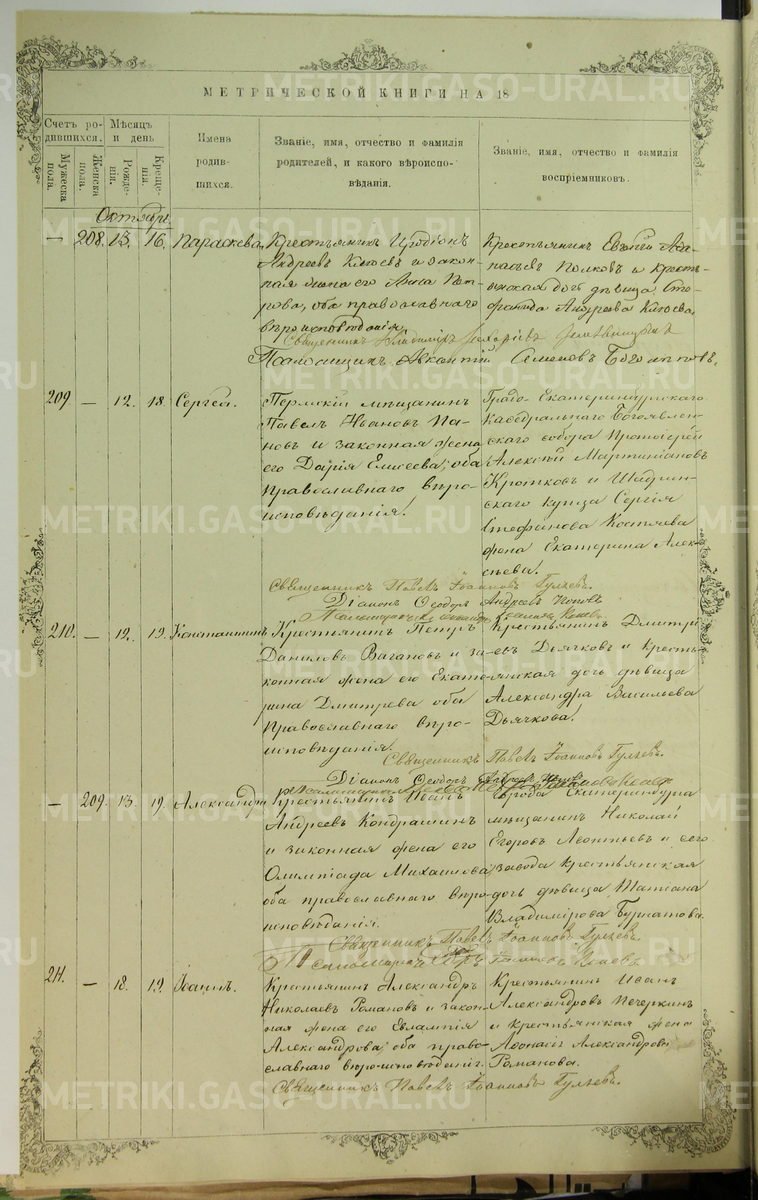 МЕТРИЧЕСКОЙ КНИГИ НА 18
Счетъ ро-
дившихся.
Мужеска пола.
Женска пола.
Мѣсяцъ
и день
Рожде-
нія.
Креще-
нія.
Имена
родив-
шихся.
Званіе, имя, отчество и фамилія
родителей, и какого вѣроиспо-
вѣданія.
Званіе, имя, отчество и фамилія
воспріемниковъ.
Октябрь
— 208. 13. 16. Параскева.
Крестьянинъ Иродіонъ
Андреевъ Клюевъ и закон-
ная жена его Анна Пет-
рова, оба православнаго
вѣроисповѣданія.
Крестьянинъ
Полковъ и кресть-
янская дочь дѣвица
Андреева Клюева.
Священникъ
Семеновъ
209 — 12. 18. Сергѣй.
Пермскій мѣщанинъ
Павелъ Ивановъ Па-
новъ и законная жена
его Дарія Елисеева, оба
Православнаго вѣро-
исповѣданія.
Градо-Екатеринбургскаго
Каѳедральнаго Богоявлен-
скаго собора Протоіерей
Алексѣй Мартиніановъ
Кротковъ и Шадрин-
скаго купца Сергія
Стефанова
жена Екатерина Алек-
сѣева.
Священникъ Павелъ Іоанновъ Гуляевъ.
Діаконъ Ѳеодоръ Андреевъ Поповъ
210. — 12. 19. Константинъ
Крестьянинъ Петръ
Даниловъ Вагановъ и за-
конная жена его Екате-
рина Дмитрева оба
Православнаго вѣро-
исповѣданія.
Крестьянинъ Дмитрій
Дьячковъ и кресть-
янская дочь дѣвица
Александра Васильева
Дьячкова.
Священникъ Павелъ Іоанновъ Гуляевъ.
Діаконъ Ѳеодоръ Андреевъ Поповъ
— 209. 13. 19. Александра
Крестьянинъ Иванъ
Андреевъ Кондрашинъ
и законная жена его
Олимпіада Михаилова
оба православнаго вѣро-
исповѣданія.
города Екатеринбурга
мѣщанинъ Николай
Егоровъ Леонтьевъ и сего
завода крестьянская
дочь дѣвица Татіана
Владимірова
Священникъ Павелъ Іоанновъ Гуляевъ.
211. — 18. 19. Іоаннъ.
Крестьянинъ Александръ
Николаевъ Романовъ и закон-
ная жена его Евлампія
Александрова; оба право-
славнаго вѣроисповѣданія.
Крестьянинъ Иванъ
Александровъ Печеркинъ
и крестьянская жена
Александрова
Романова.
Священникъ Павелъ Іоанновъ Гуляевъ.
METRIKI.GASO-URAL.RU